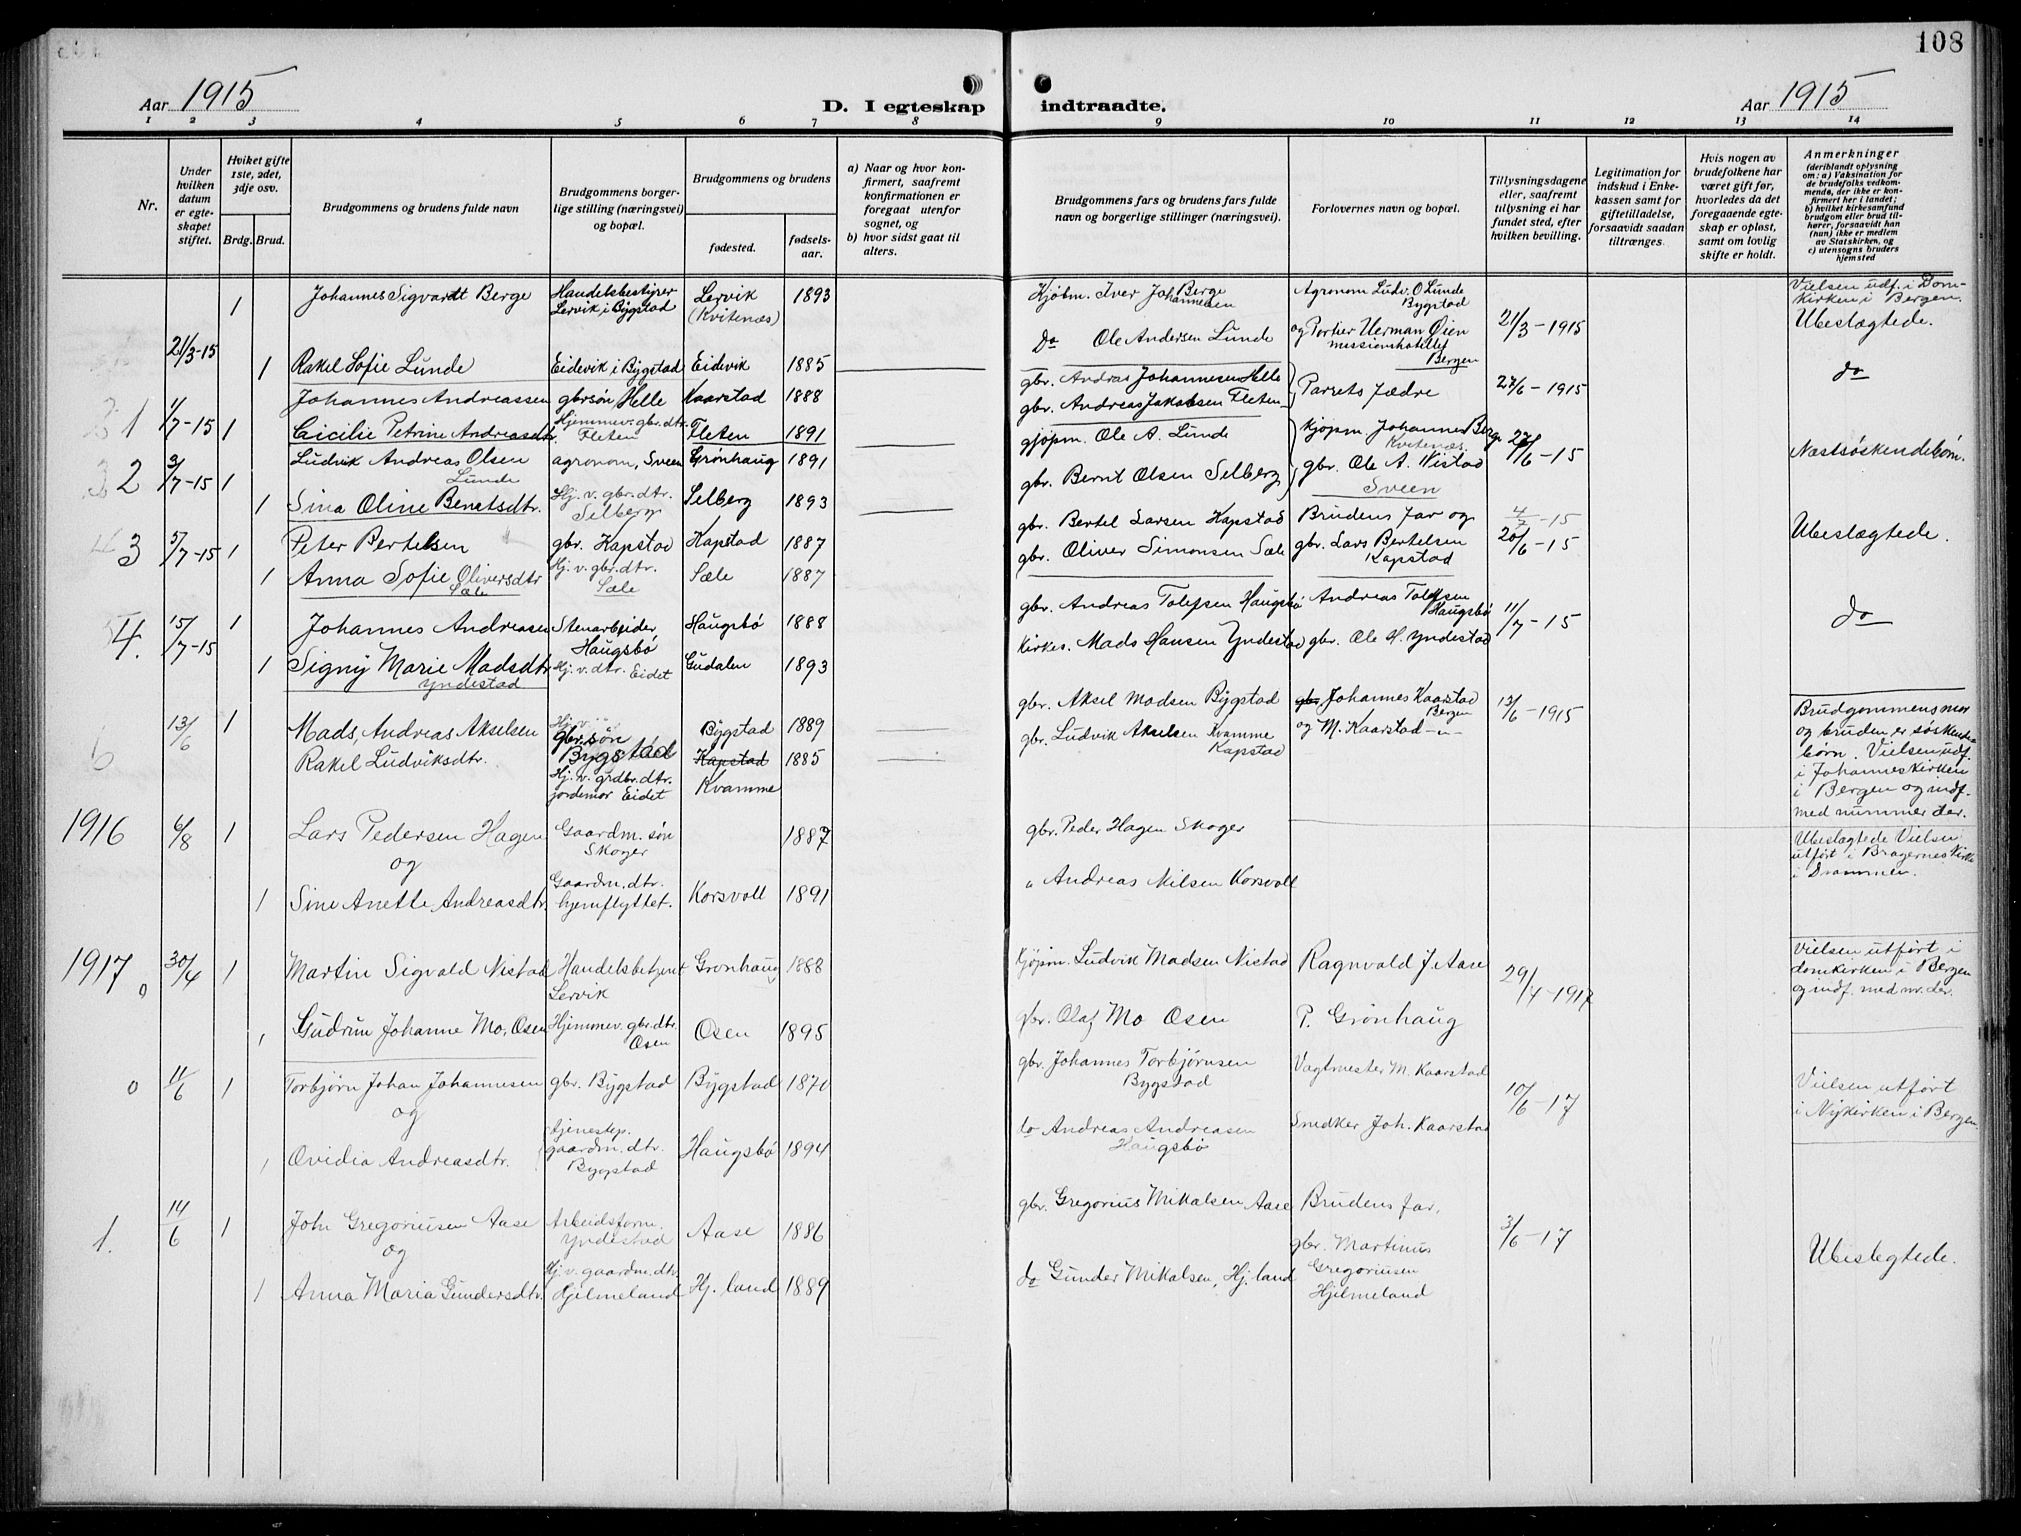 108
Aar 1915
D. I egteskap indtraadte.
Aar 1915
1 2 3 4 5 6 7 8 9 10 11 12 13 14
Nr.
Under hvilken datum er egteskapet stiftet.
Hviket gifte 1ste, 2det, 3dje osv.
Brdg. Brud.
Brudgommens og brudens fulde navn
Brudgommens borgerlige stilling (næringsvei) og bopæl.
Brudgommens og brudens
fødested.
fødselsaar.
a) Naar og hvor konfirmert, saafremt konfirmationen er foregaat utenfor sognet, og
b) hvor sidst gaat til alters.
Brudgommens fars og brudens fars fulde navn og borgerlige stillinger (næringsvei).
Forlovernes navn og bopæl.
Tillysningsdagene eller, saafremt tillysning ei har fundet sted, efter hvilken bevilling.
Legitimation for indskud i Enkekassen samt for giftetilladelse, forsaavidt saadan tiltrænges.
Hvis nogen av brudefolkene har været gift før, hvorledes da det foregaaende egteskap er opløst, samt om lovlig skifte er holdt.
Anmerkninger
(deriblandt oplysning om: a) Vaksination for de brudefolks vedkommende, der ikke er konfirmert her i landet; b) hvilket kirkesamfund brudgom eller brud tilhører, forsaavidt han (hun) ikke er medlem av Statskirken, og c) utensogns bruders hjemsted
21/3-15 1 Johannes Sigvardt Berge Handelsbestyrer Lervik i Bygstad Lervik (Kvitenæs) 1893 Kjøbm. Iver Johannesen Berge Agronom Ludv. O Lunde Bygstad 21/3-1915 Vielsen udf. i Domkirken i Bergen. Ubeslægtede.
1 Rakel Sofie Lunde Eidevik i Bygstad Eidevik 1885 Do Ole Andersen Lunde og Portier Herman Øien missionshotellet Bergen
1 1/7-15 1 Johannes Andreassen gbrsøn Helle Kaarstad 1888 gbr. Andras Johannesen Helle Parrets Fædre 27/6-1915 do
Cicilie Petrine Andreasdtr. Hjemmev. gbr. dtr. Fleten Fleten 1891 gbr. Andreas Jakobsen Fleten
2 3/7-15 1 Ludvik Andreas Olsen Lunde agronom, Sveen Grønhaug 1891 gjøpm. Ole A. Lunde Kjøpm Johannes Berge Kvitenæs 27/6-15 Næstsøskendebørn.
1 Sina Oline Berntsdtr. Hj. v. gbr. dtr. Selberg Selberg 1893 gbr. Bernt Olsen Selberg gbr. Ole A. Nistad Sveen
3 5/7-15 1 Peter Bertelsen gbr. Kapstad Kapstad 1887 gbr. Bertel Larsen Kapstad Brudens Far og 4/7-15 Ubeslægtede.
1 Anna Sofie Oliversdtr Sæle Hj. v. gbr. dtr. Sæle Sæle 1887 gbr. Oliver Simonsen Sæle gbr. Lars Bertelsen Kapstad 20/6-15
4. 15/7-15 1 Johannes Andreasen Stenarbeider Haugsbø Haugsbø 1888 gbr. Andreas Tolefsen Haugsbø Andreas Tolefsen Haugsbø 11/7-15 do
1 Signy Marie Madsdtr Yndestad Hj. v. dtr. Eidet Gudalen 1893 Kirkes. Mads Hansen Yndestad gbr. Ole H. Yndestad
6 13/6 1 Mads, Andreas Akselsen gbr. søn Bygstad Bygstad 1889 gbr. Aksel Madsen Bygstad gbr Johannes Kaarstad Bergen 13/6-1915 Brudgommens mor og bruden er søskendebørn. Vielsen udf. i Johanneskirken i Bergen og indf. med nummer der.
Rakel Ludviksdtr. Hj. v. grdbr. dtr. jordemor Eidet Kapstad Kvamme 1885 gbr. Ludvik Akselsen Kvamme Kapstad og M. Kaarstad -"-
1916 6/8 1 Lars Pedersen Hagen Gaardm. søn Skoger 1887 gbr. Peder Hagen Skoger Ubeslægtede Vielsen utført i Bragernes Kirke i Drammen.
og
1 Sine Anette Andreasdtr. Gaardm. dtr. hjemflyttet. Korsvoll 1891 " Andreas Nilsen Korsvoll
1917 0 30/4 1 Martin Sigvald Nistad Handelsbetjent Lervik Grønhaug 1888 Kjøpm. Ludvik Madsen Nistad Ragnvald J. Aase 29/4-1917 Vielsen utført i domkirken i Bergen og indf. med nr. der.
1 Gudrun Johanne Mo, Osen Hjemmev. gbr. dtr. Osen Osen 1895 gbr. Olaf Mo Osen P. Grønhaug
0 11/6 1 Torbjørn Johan Johannesen gbr. Bygstad Bygstad 1870 gbr. Johannes Torbjørnsen Bygstad Vagtmester M. Kaarstad 10/6-17 Vielsen utført i Nykirken i Bergen.
og
1 Ovidia Andreasdtr. tjenestep. gaardm. dtr. Bygstad Haugsbø 1894 do Andreas Andreasen Haugsbø Snedker Joh. Kaarstad
1. 14/6 1 John Gregoriusen Aase Arbeidsform. Yndestad Aase 1886 gbr. Gregorius Mikalsen Aase Brudens far, 3/6-17 Ubeslegtede.
og
1 Anna Maria Gundersdtr. Hj. v. gaardm. dtr. Hjelmeland Hj. land 1889 do Gunder Mikalsen, Hj. land gbr. Martinus Gregoriusen Hjelmeland